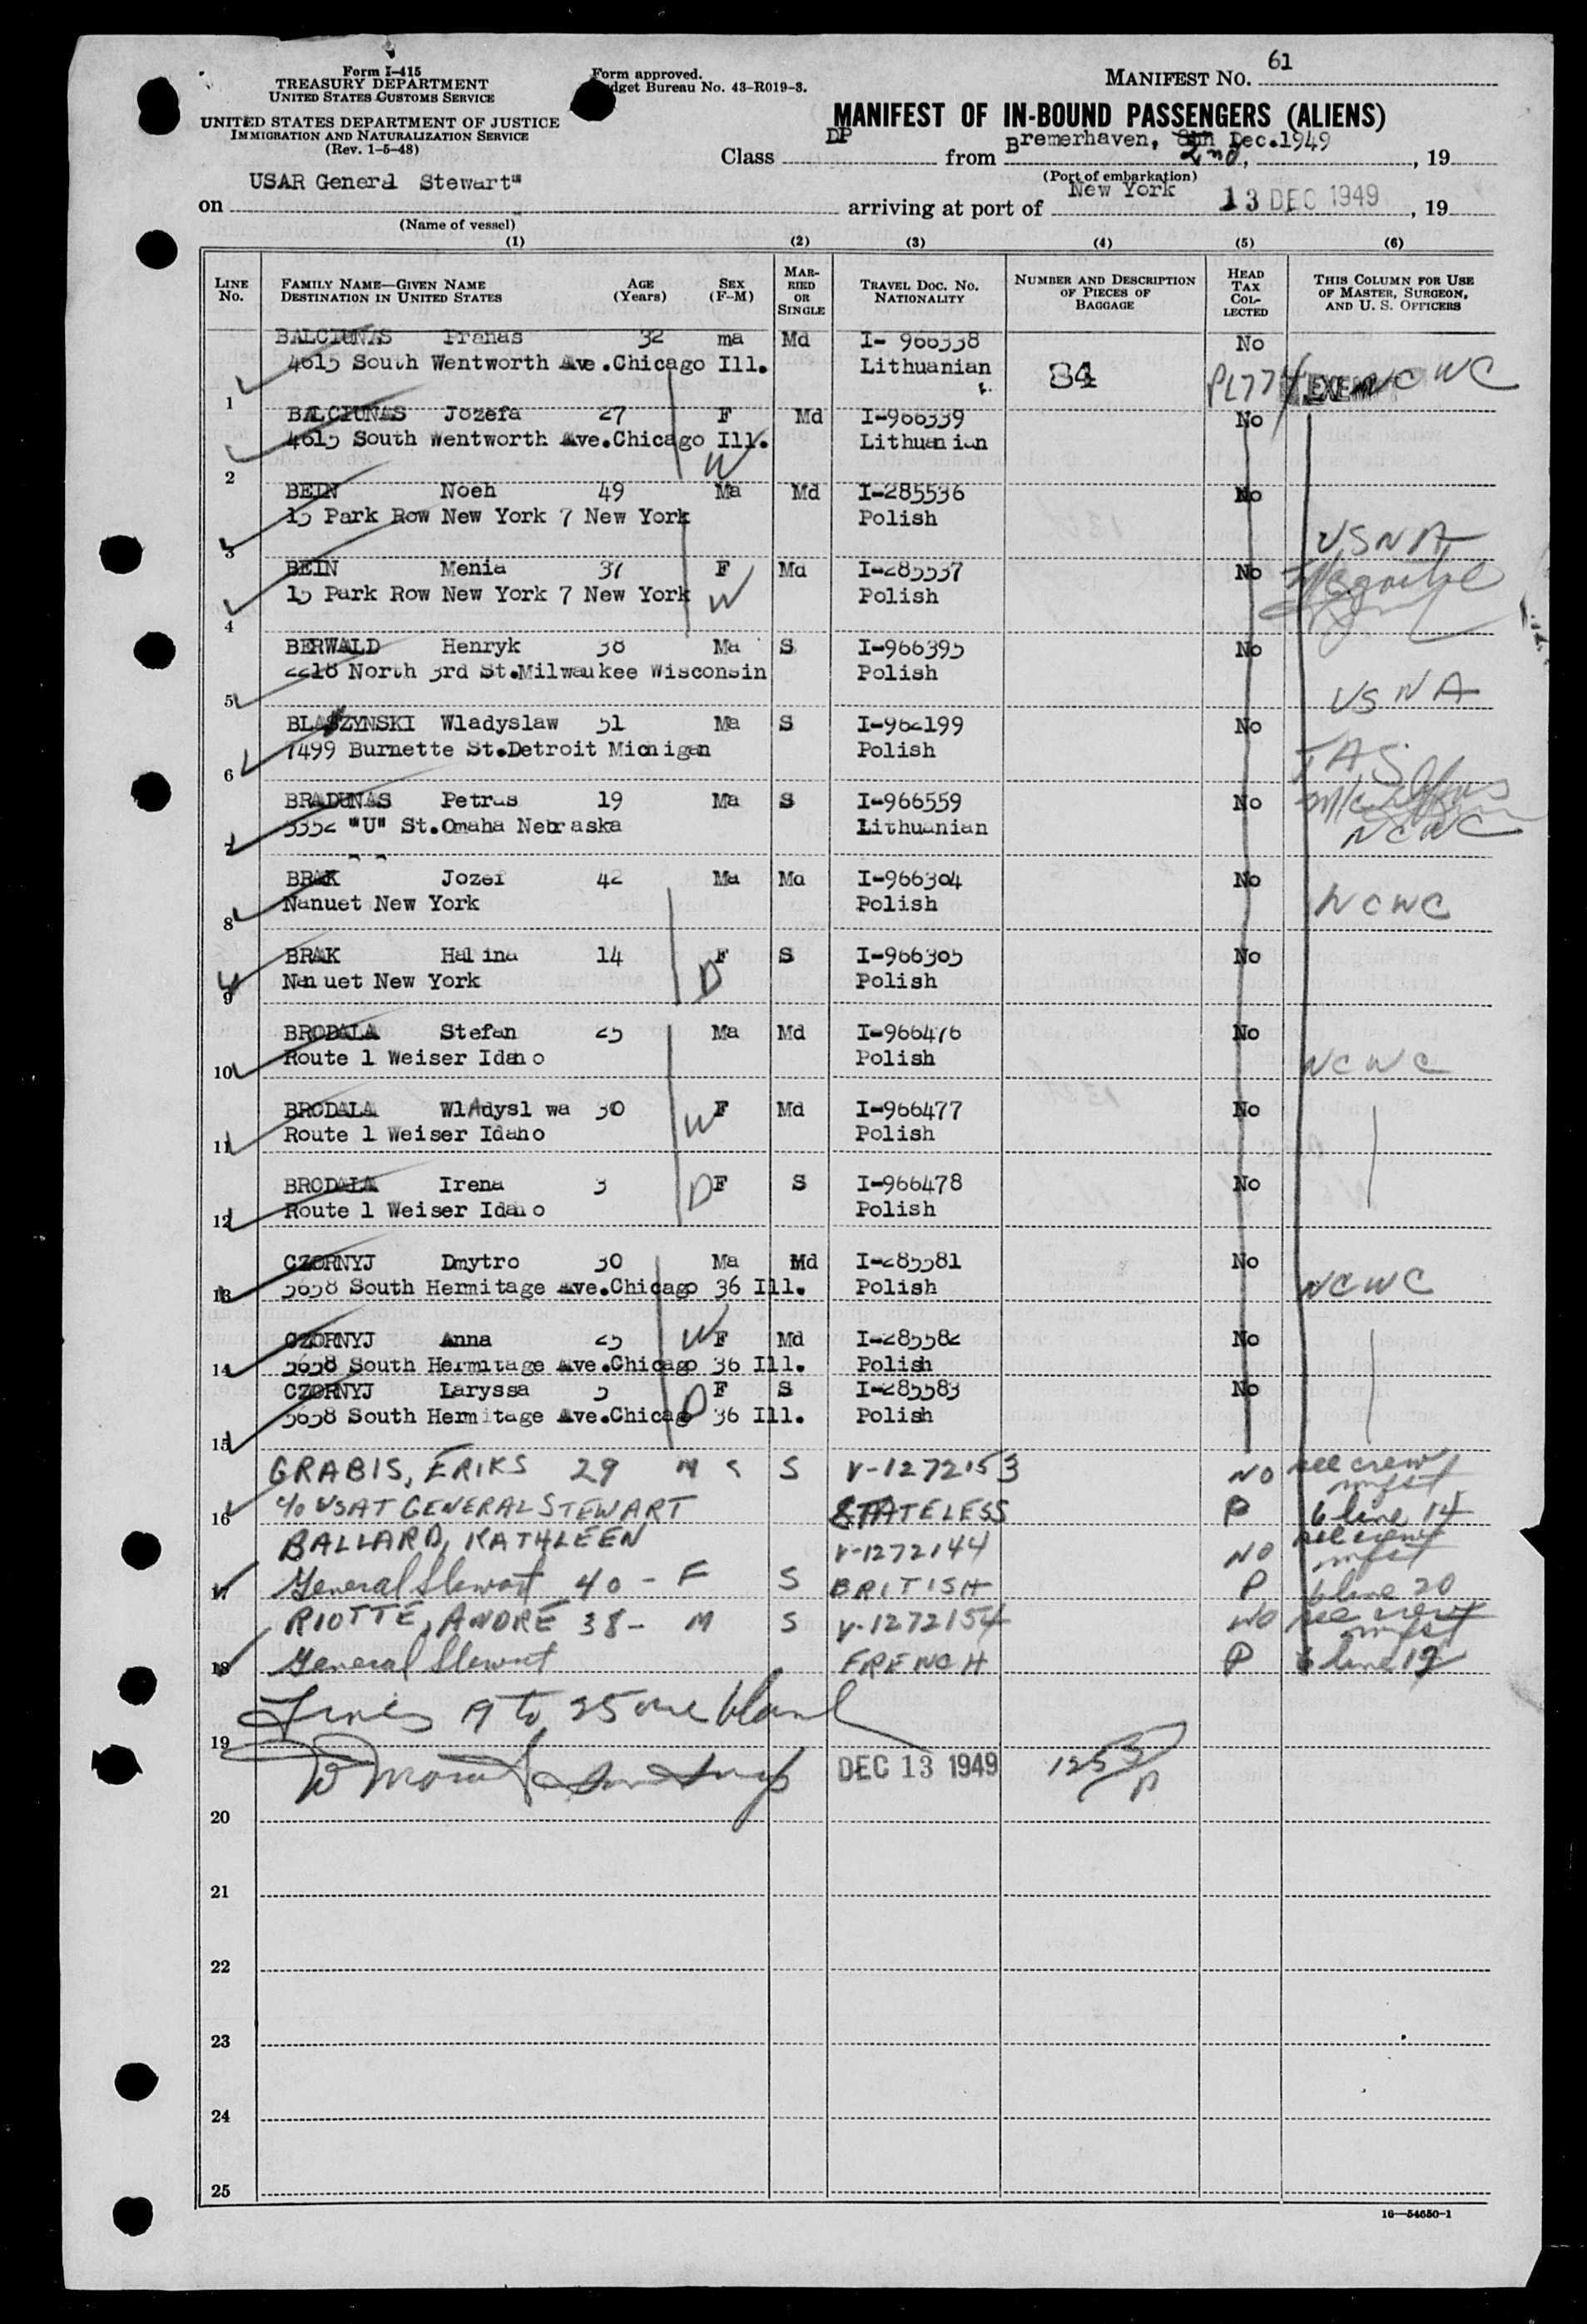 Form I-415
TREASURY DEPARTMENT
UNITED STATES CUSTOMS SERVICE
UNITED STATES DEPARTMENT OF JUSTICE
IMMIGRATION AND NATURALIZATION SERVICE
(Rev. 1-5-48)
Form approved.
Budget Bureau No. 43-R019-3.
MANIFEST NO. 61
MANIFEST OF IN-BOUND PASSENGERS (ALIENS)
Class DP from Bremerhaven, 2nd, Dec.1949, 19
(Port of embarkation)
on USAR General Stewart" arriving at port of New York 13 DEC 1949, 19
(Name of vessel)
(1) (2) (3) (4) (5) (6)
LINE NO. FAMILY NAME—GIVEN NAME DESTINATION IN UNITED STATES AGE (Years) SEX (F-M) MARRIED OR SINGLE TRAVEL DOC. NO. NATIONALITY NUMBER AND DESCRIPTION OF PIECES OF BAGGAGE HEAD TAX COLLECTED THIS COLUMN FOR USE OF MASTER, SURGEON, AND U. S. OFFICERS
BALCIUNAS Pranas 32 ma Md I- 966338 No
1 4615 South Wentworth Ave.Chicago Ill. Lithuanian 84 PL774 NCWC
BALCIUNAS Jozefa 27 F Md I-966339 No
2 4615 South Wentworth Ave.Chicago Ill. W Lithuanian
BEIN Noeh 49 Ma Md I-285536 No
3 15 Park Row New York 7 New York Polish USNA
BEIN Menia 37 F Md I-285537 No
4 15 Park Row New York 7 New York W Polish
BERWALD Henryk 38 Ma S I-966395 No
5 2218 North 3rd St.Milwaukee Wisconsin Polish USNA
BLASZYNSKI Wladyslaw 51 Ma S I-962199 No
6 7499 Burnette St.Detroit Michigan Polish
BRADUNAS Petras 19 Ma S I-966559 No
7 3352 "U" St.Omaha Nebraska Lithuanian NCWC
BRAK Jozef 42 Ma Md I-966304 No
8 Nanuet New York Polish NCWC
BRAK Halina 14 F S I-966305 No
9 Nanuet New York D Polish
BRODALA Stefan 25 Ma Md I-966476 No
10 Route 1 Weiser Idaho Polish NCWC
BRODALA WlAdysl wa 30 F Md I-966477 No
11 Route 1 Weiser Idaho W Polish
BRODALA Irena 3 F S I-966478 No
12 Route 1 Weiser Idaho D Polish
CZORNYJ Dmytro 30 Ma Md I-285581 No
13 5658 South Hermitage Ave.Chicago 36 Ill. Polish NCWC
CZORNYJ Anna 25 W F Md I-285582 No
14 5658 South Hermitage Ave.Chicago 36 Ill. Polish
CZORNYJ Laryssa 5 F S I-285583 No
15 5658 South Hermitage Ave.Chicago D 36 Ill. Polish
GRABIS, ERIKS 29 M S S V-1272153 NO see crew mfst
16 c/o USAT GENERAL STEWART STATELESS P 6 line 14
BALLARD, KATHLEEN V-1272144 NO see crew mfst
17 General Stewart 40 - F S BRITISH P 6 line 20
RIOTTE, ANDRE 38- M S V-1272154 NO see crew mfst
18 General Stewart FRENCH P 6 line 19
Lines 19 to 25 are blank
19
DEC 13 1949
20
21
22
23
24
25
16—54650-1